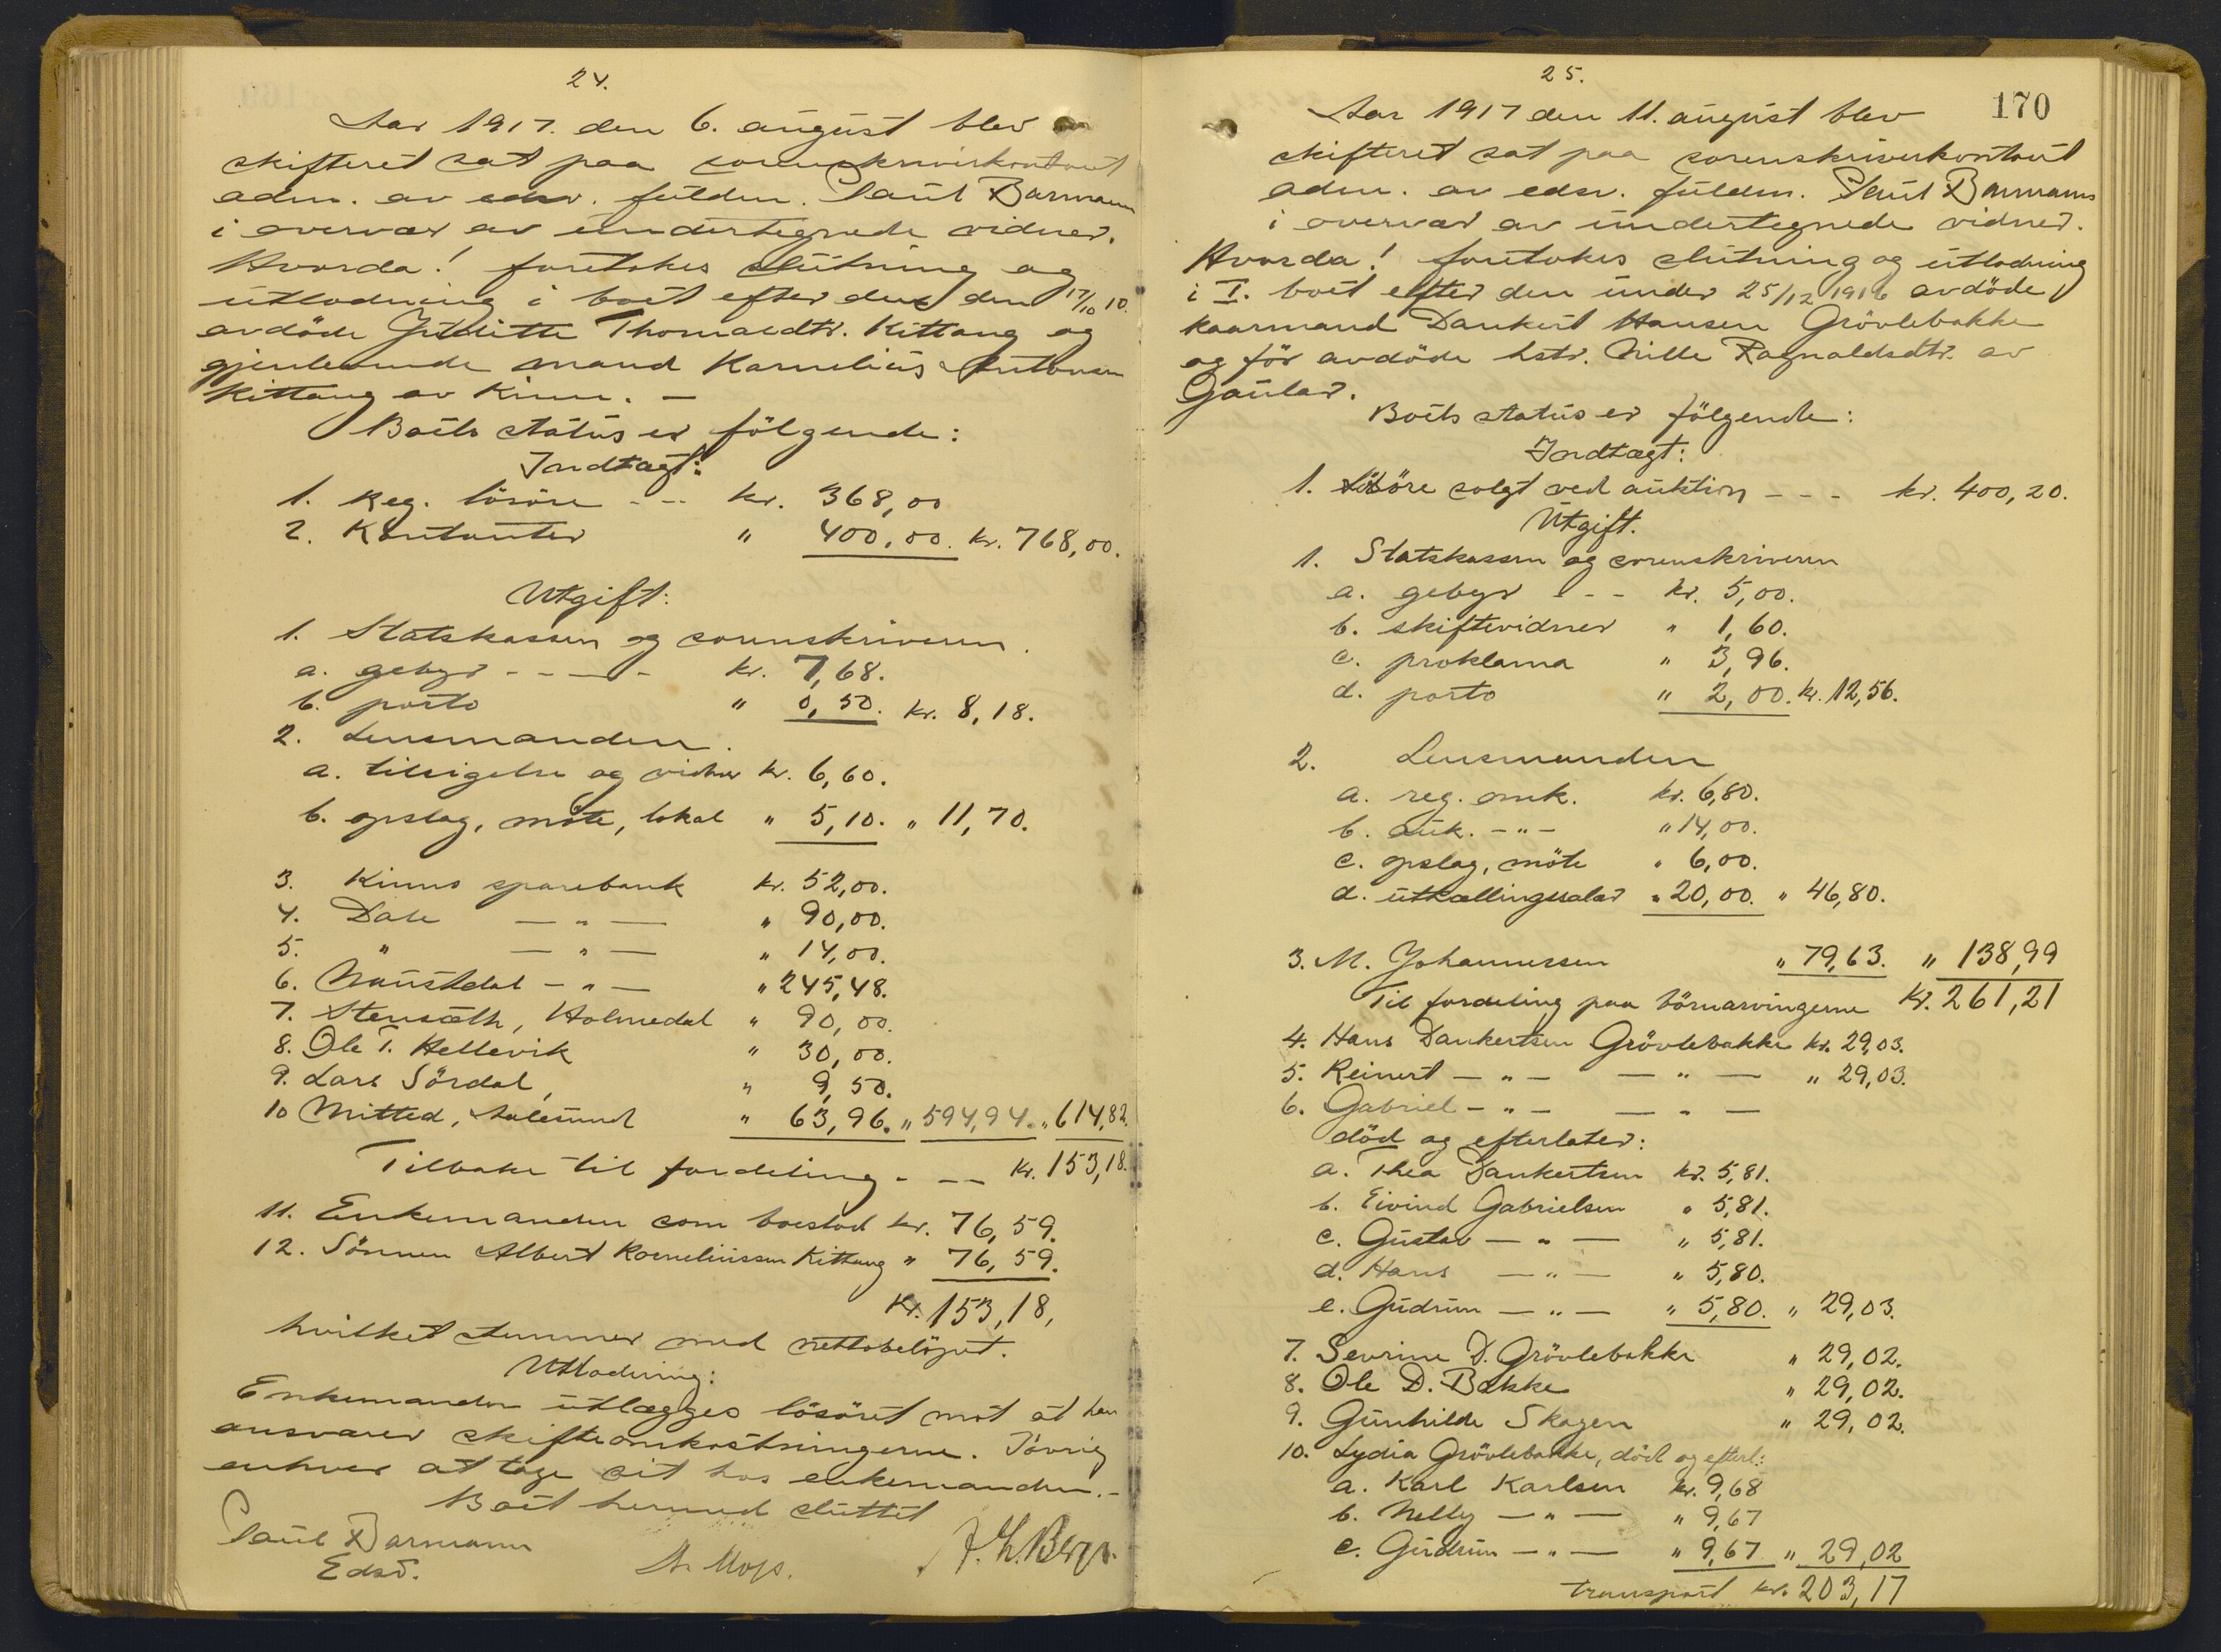 24.
Aar 1917. den 6. august blev
skifteret sat paa sorenskriverkontoret
adm. av edsv. fuldm. Paul Barmann
i overvær av undertegnede vidner.
Hvorda! foretokes slutning og
utlodning i boet efter den den 17/10 10.
avdöde Thomasdtr. Kittang og
gjenlevende mand Kornelius Antonsen
Kittang av Kinn. —
Boets status er fölgende:
Indtægt:
1. Reg. lösöre - - - kr. 368,00
2. Kontanter " 400,00. kr. 768,00.
Utgift:
1. Statskassen og sorenskriveren.
a. gebyr - - - - - kr. 7,68.
b. porto " 0,50. kr. 8,18.
2. Lensmanden.
a. tilsigelse og vidner kr. 6,60.
b. opslag, möte, lokal " 5,10. " 11,70.
3. Kinns sparebank kr. 52,00.
4. Dale — " — " 90,00.
5. " — " — " 14,00.
6. Naustdal - " — " 245,48.
7. Stensæth, Holmedal " 90,00.
8. Ole T. Hellevik " 30,00.
9. Lars Sördal, " 9,50.
10 Mitted, Aalesund " 63,96. " 594,94. " 614,82.
Tilbake til fordeling - - - kr. 153,18.
11. Enkemanden som boeslod kr. 76,59.
12. Sönnen Albert Korneliussen Kittang " 76,59.
Kr. 153,18,
hvilket stemmer med nettobelöpet.
Utlodning:
Enkemanden utlægges lösöret mot at han
ansvarer skifteomkostningerne. Iövrig
enhver at tage sit hos enkemanden.-
Boet hermed sluttet
Paul Barmann
Edsv.
25.
170
Aar 1917 den 11. august blev
skifteret sat paa sorenskriverkontoret
adm. av edsv. fuldm. Paul Barmann
i overvær av undertegnede vidner.
Hvorda! foretokes slutning og utlodning
i I. boet efter den under 25/12 1916 avdöde
kaarmand Dankert Hansen Grövlebakke
og för avdöde hstr. Nille Ragnaldsdtr. av
Gaular.
Boets status er fölgende:
Indtægt:
1. Lösöre solgt ved auktion - - - kr. 400,20.
Utgift.
1. Statskassen og sorenskriveren
a. gebyr - - - kr. 5,00.
b. skiftevidner " 1,60.
c. proklama " 3,96.
d. porto " 2,00. kr. 12,56.
2. Lensmanden
a. reg. omk. kr. 6,80.
b. auk. - " - " 14,00.
c. opslag, möte " 6,00.
d. utkallingssalær " 20,00. " 46,80.
3. M. Johannessen " 79,63. " 138,99
Til fordeling paa börnarvingerne Kr. 261,21
4. Hans Dankertsen Grövlebakke kr. 29,03.
5. Reinert — " — — " — " 29,03.
6. Gabriel - " - — " —
död og efterlater:
a. Thea Dankertsen kr. 5,81.
b. Eivind Gabrielsen " 5,81.
c. Gustav — " — " 5,81.
d. Hans — " — " 5,80.
e. Gudrun — " — " 5,80. " 29,03.
7. Sevrine D. Grövlebakke " 29,02.
8. Ole D. Bakke " 29,02.
9. Gunhilde Skagen " 29,02.
10. Lydia Grövlebakke, död og efterl.:
a. Karl Karlsen kr. 9,68
b. Nelly — " — " 9,67
c. Gudrun — " — " 9,67 " 29,02
transport kr. 203,17